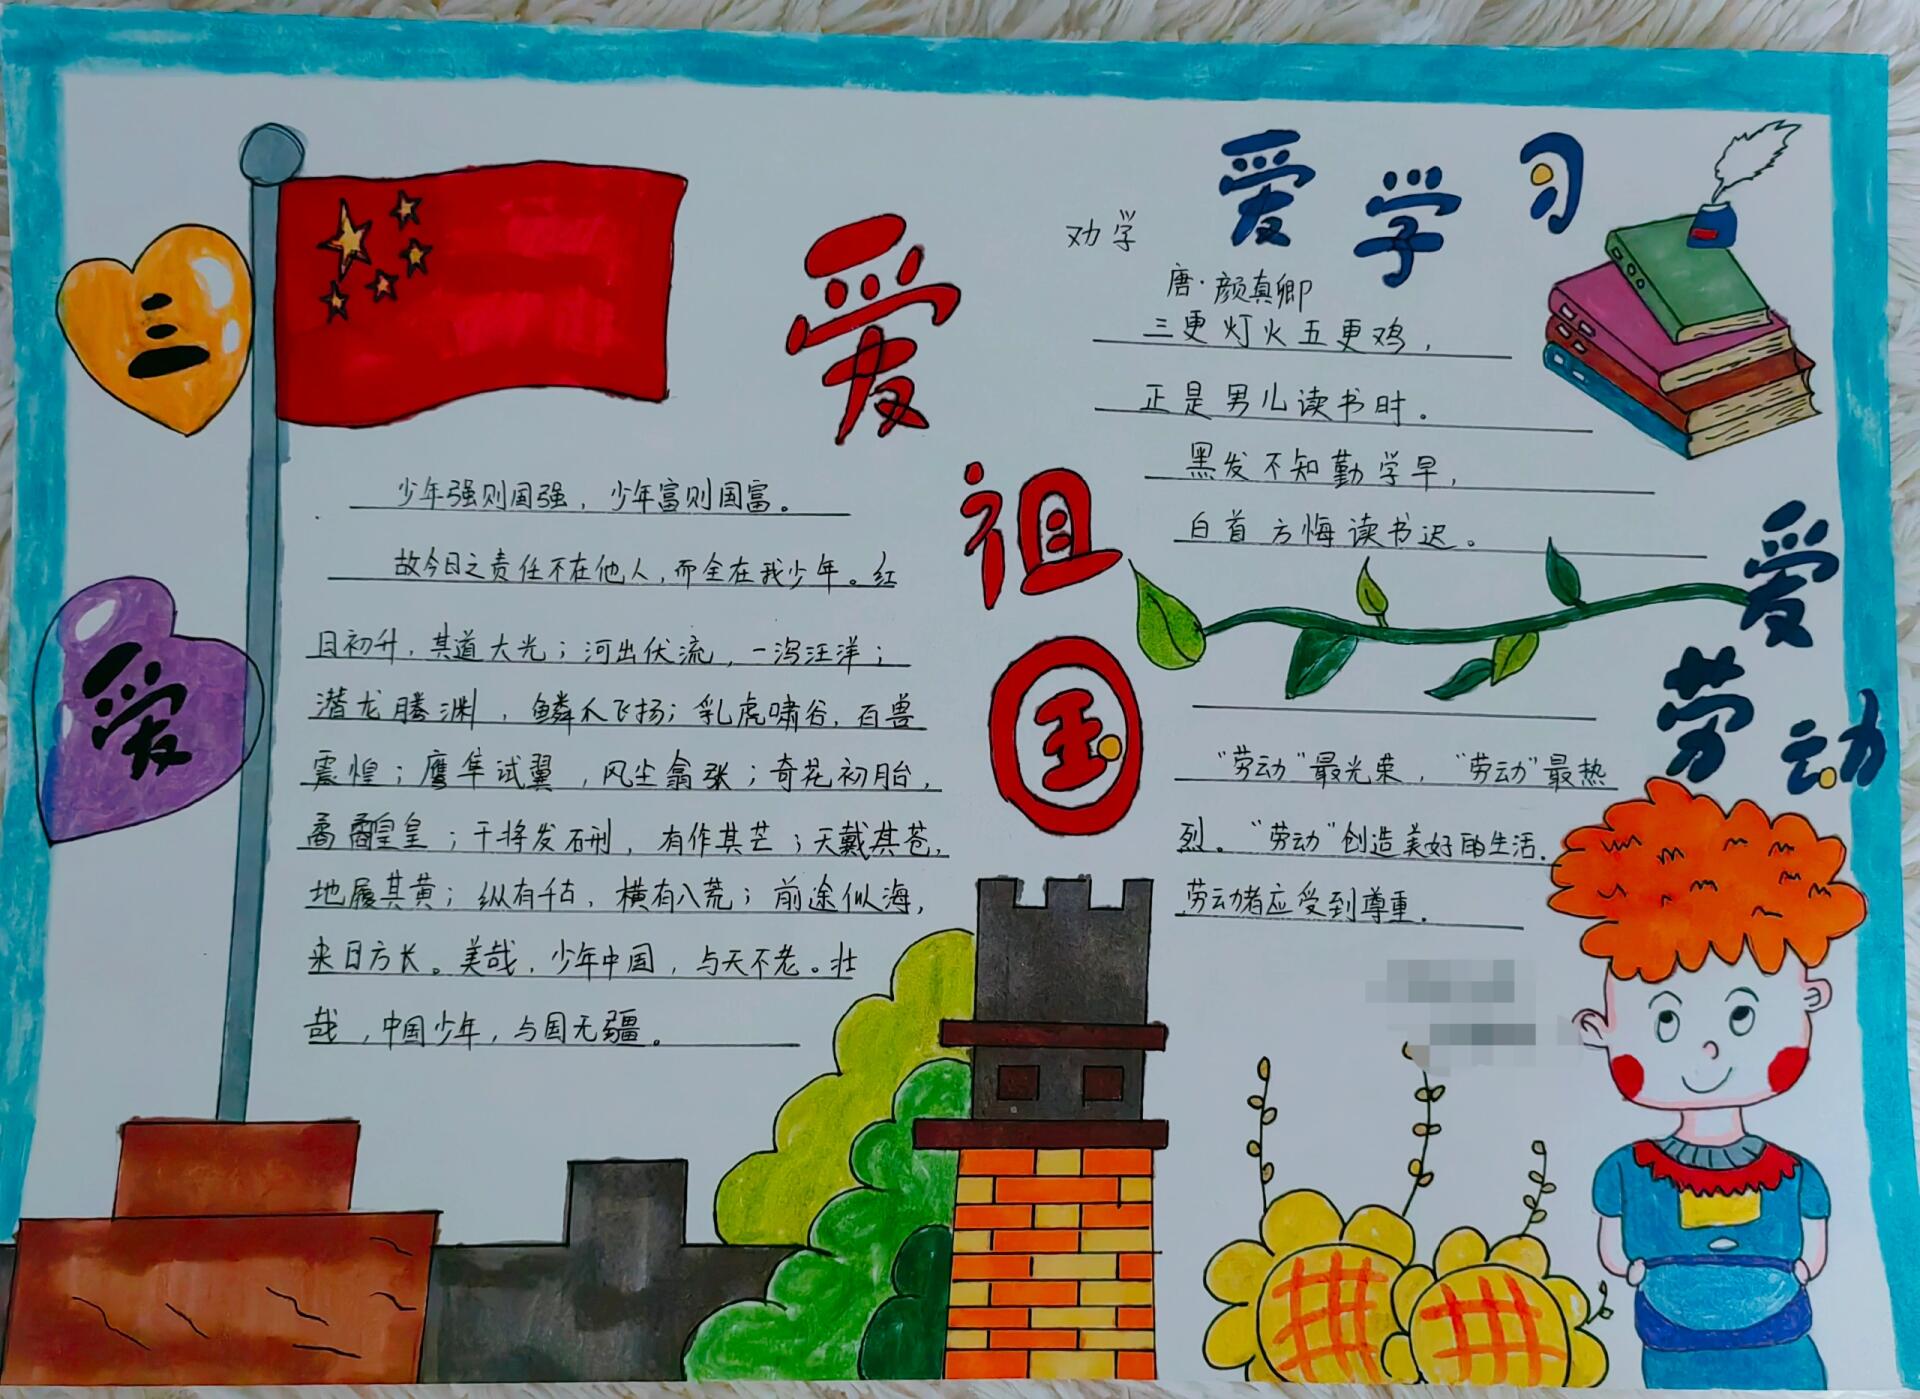 三
爱
爱
祖
国
少年强则国强，少年富则国富。
故今日之责任不在他人，而全在我少年。红
日初升，其道大光；河出伏流，一泻汪洋；
潜龙腾渊，鳞爪飞扬；乳虎啸谷，百兽
震惶；鹰隼试翼，风尘翕张；奇花初胎，
矞矞皇皇；干将发硎，有作其芒；天戴其苍，
地履其黄；纵有千古，横有八荒；前途似海，
来日方长。美哉，少年中国，与天不老。壮
哉，中国少年，与国无疆。
爱学习
劝学
唐·颜真卿
三更灯火五更鸡，
正是男儿读书时。
黑发不知勤学早，
白首方悔读书迟。
爱
劳
动
“劳动”最光荣，“劳动”最热
烈。“劳动”创造美好的生活．
劳动者应受到尊重．